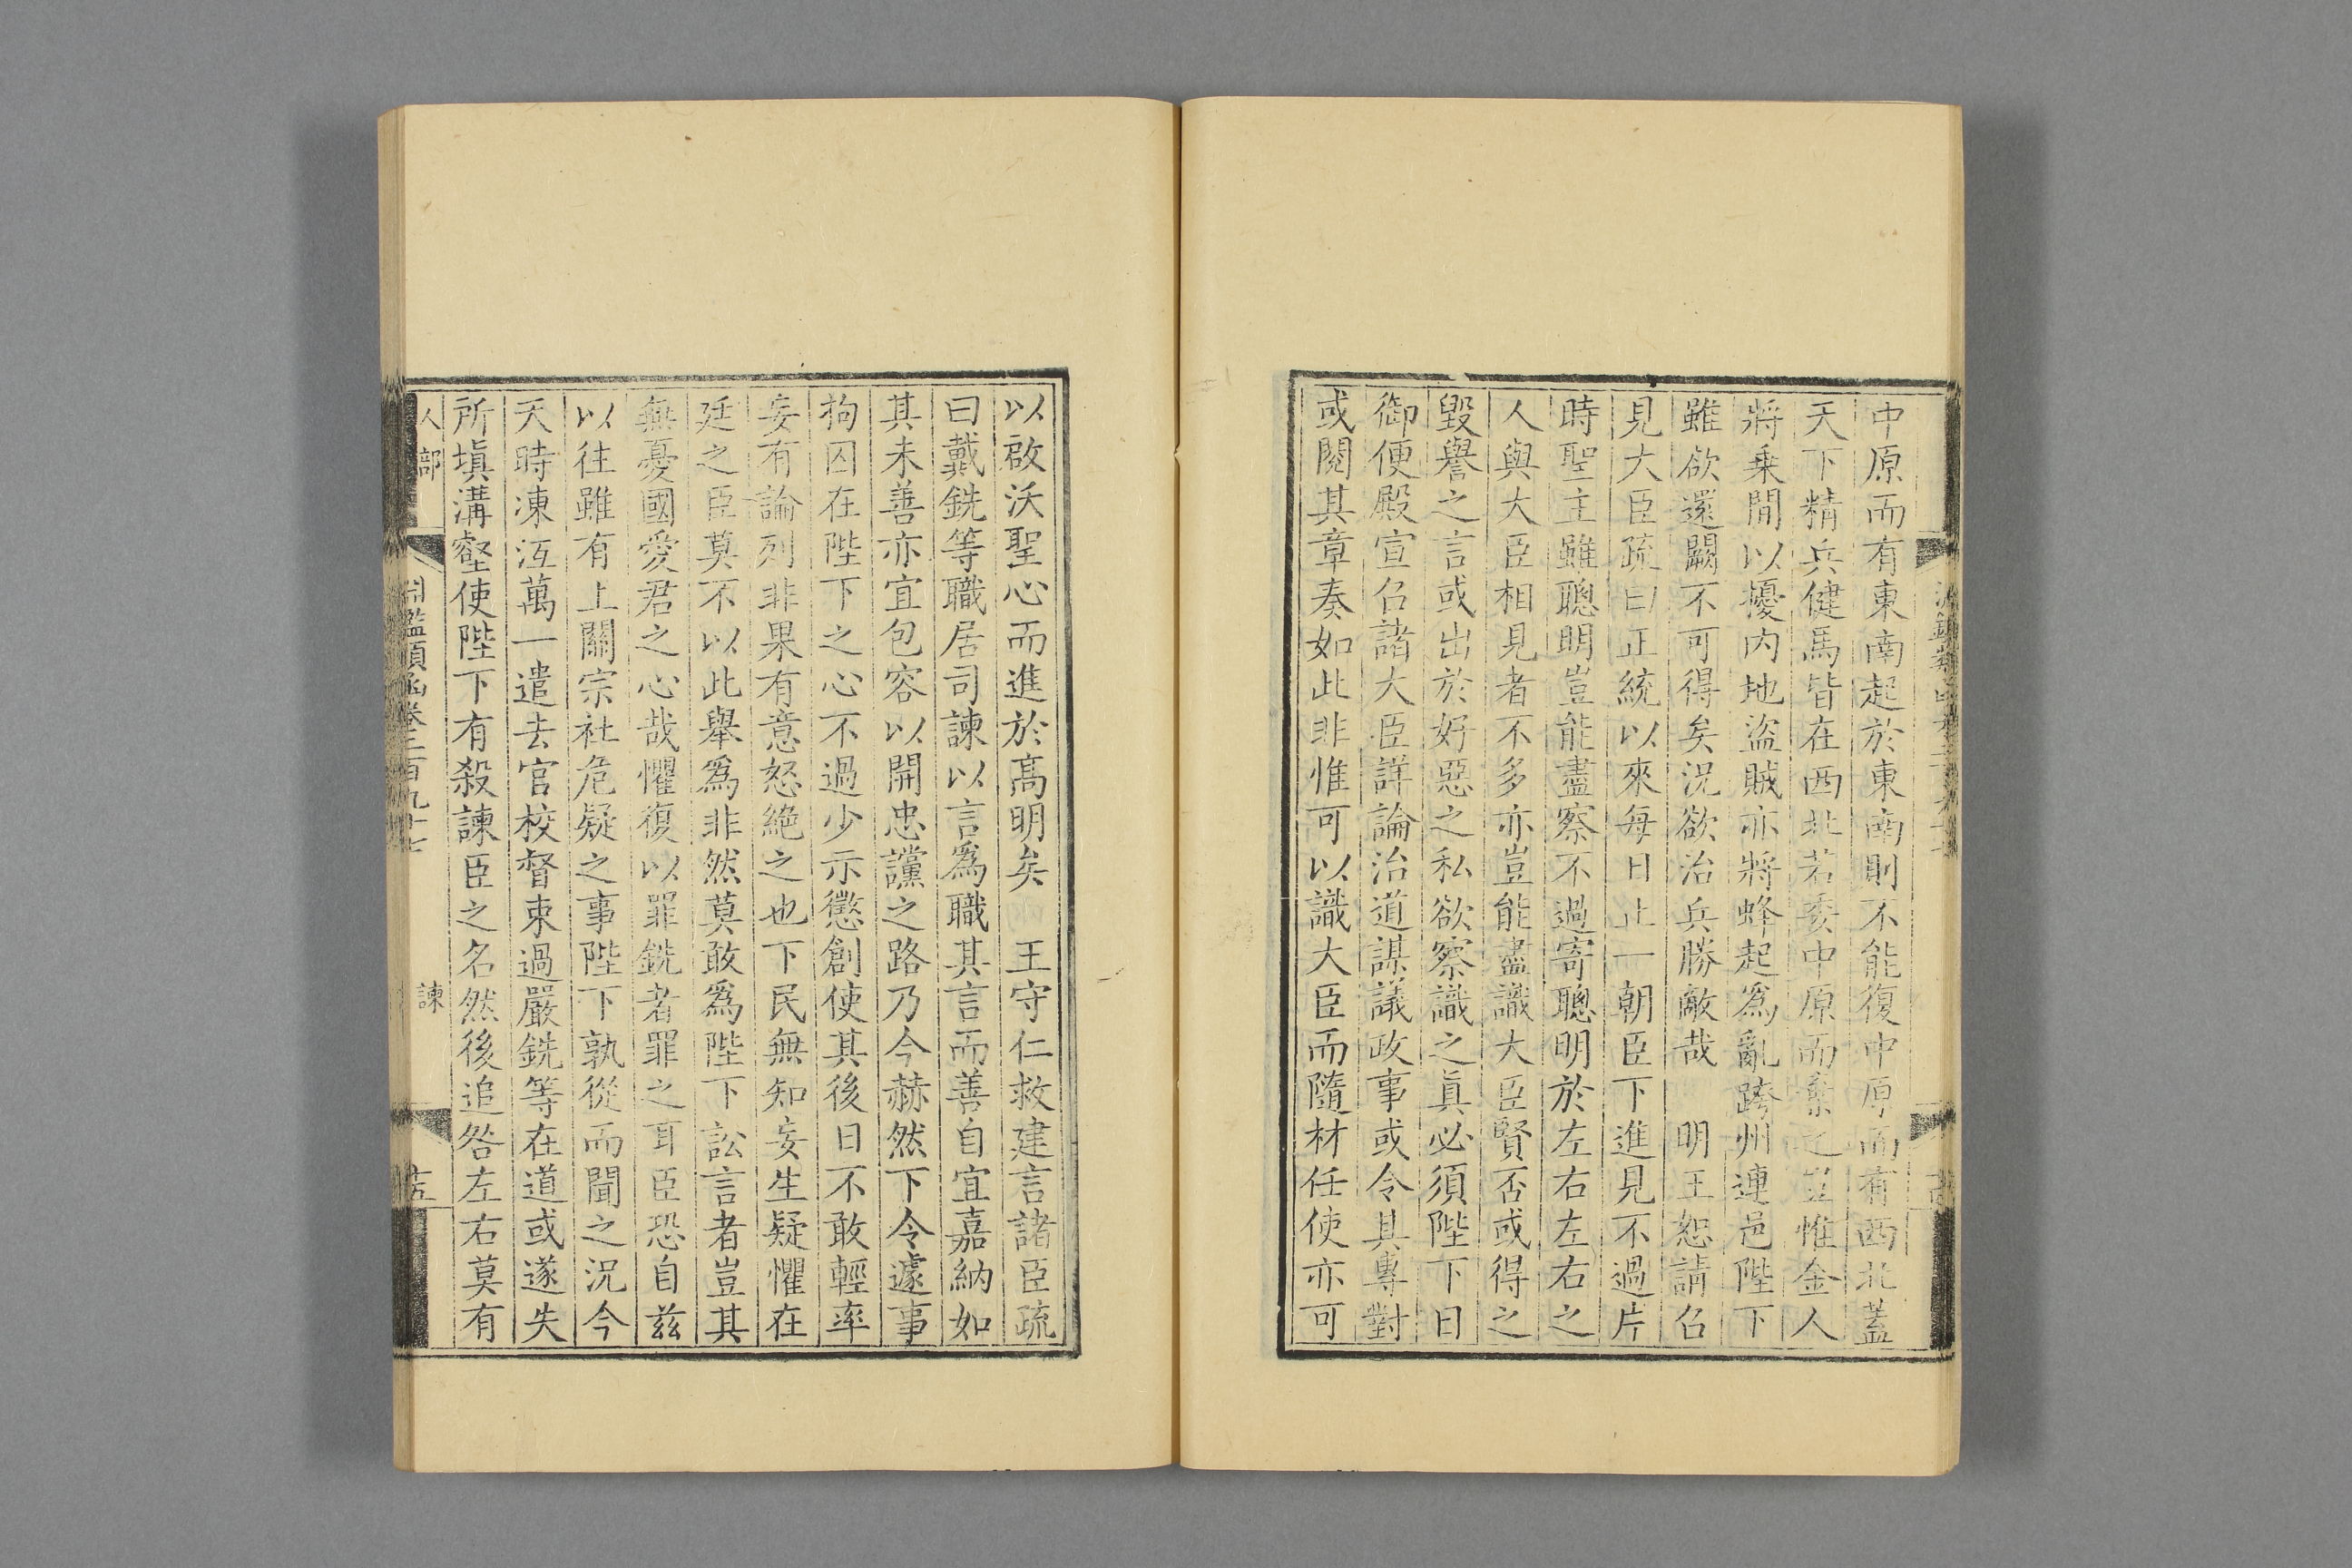 中原而有東南起於東南則不能復中原而有西北蓋
天下精兵健馬皆在西北若委中原而棄之豈惟金人
將乗閒以擾内地盜賊亦將蜂起爲亂跨州連邑陛下
雖欲還闕不可得矣況欲治兵勝敵哉　明王恕請召
見大臣疏曰正統以來每日止一朝臣下進見不過片
時聖主雖聰明豈能盡察不過寄聰明於左右左右之
人與大臣相見者不多亦豈能盡識大臣賢否或得之
毀譽之言或出於好惡之私欲察識之眞必須陛下日
御便殿宣召諸大臣詳論治道謀議政事或令其專對
或閱其章奏如此非惟可以識大臣而隨材任使亦可
以啟沃聖心而進於高明矣　王守仁救建言諸臣疏
曰戴銑等職居司諫以言爲職其言而善自宜嘉納如
其未善亦宜包容以開忠讜之路乃今赫然下令遽事
拘囚在陛下之心不過少示懲創使其後日不敢輕率
妄有論列非果有意怒絶之也下民無知妄生疑懼在
廷之臣莫不以此舉爲非然莫敢爲陛下訟言者豈其
無憂國愛君之心哉懼復以罪銑者罪之耳臣恐自兹
以往雖有上關宗社危疑之事陛下孰從而聞之況今
天時凍沍萬一遣去官校督束過嚴銑等在道或遂失
所塡溝壑使陛下有殺諫臣之名然後追咎左右莫有
人部　淵鑑類函卷二百九十七　諫　十五